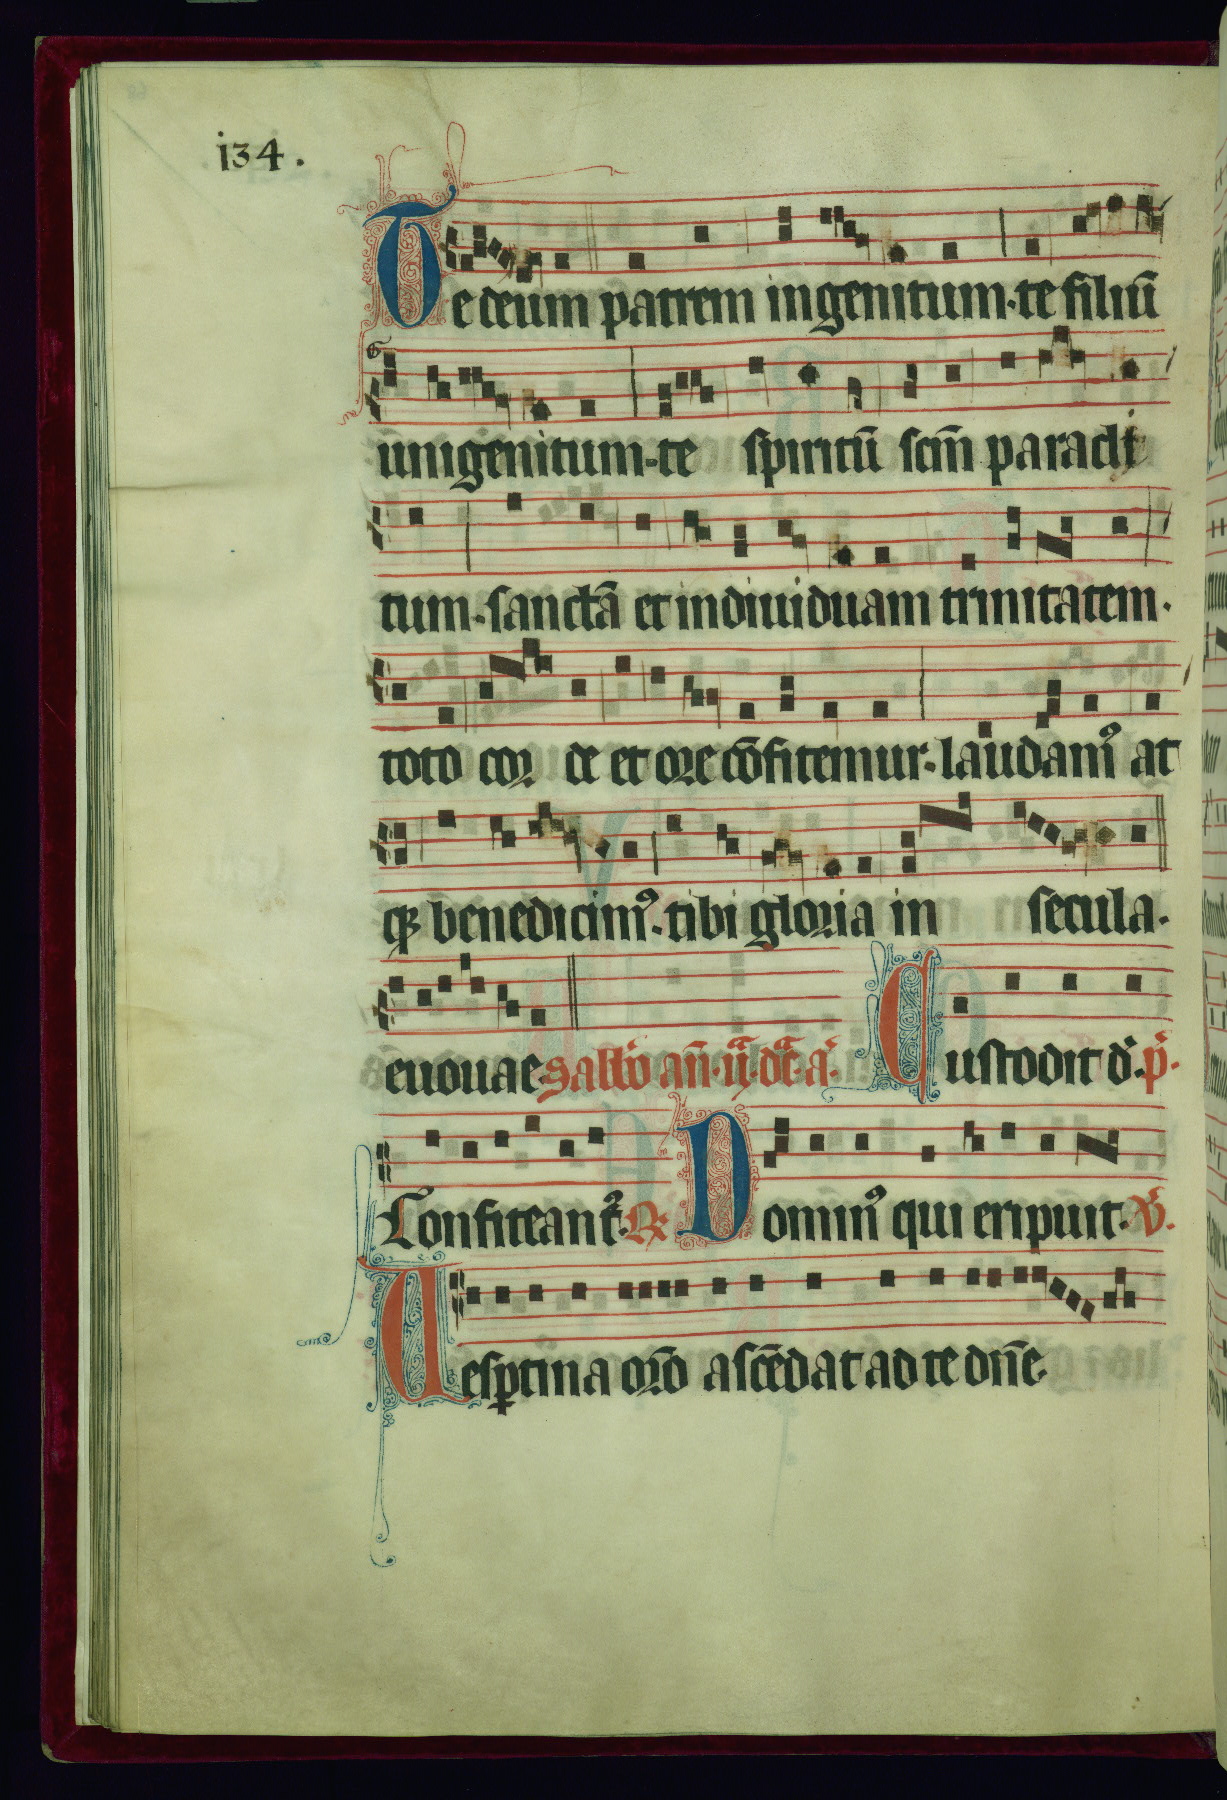 i34.
Te deum patrem ingenitum · te filiū
unigenitum · te spiritū scm̄ paracli
tum · sanctā et indiuiduam trinitatem ·
toto corde et ore cōfitemur · laudamꝰ at
qꝫ benedicimꝰ · tibi gloria in secula ·
euouae Sabb̄o an̄ · Custodit d̄ · p̄ ·
Confiteant᷑ · ℟ Dominꝰ qui eripuit · ℣ ·
Uesꝑtina or̄o ascēdat ad te dn̄e ·